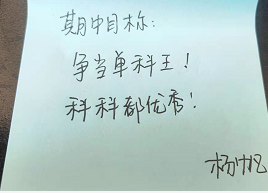 期中目标:
争当单科王!
科科都优秀!
杨帆